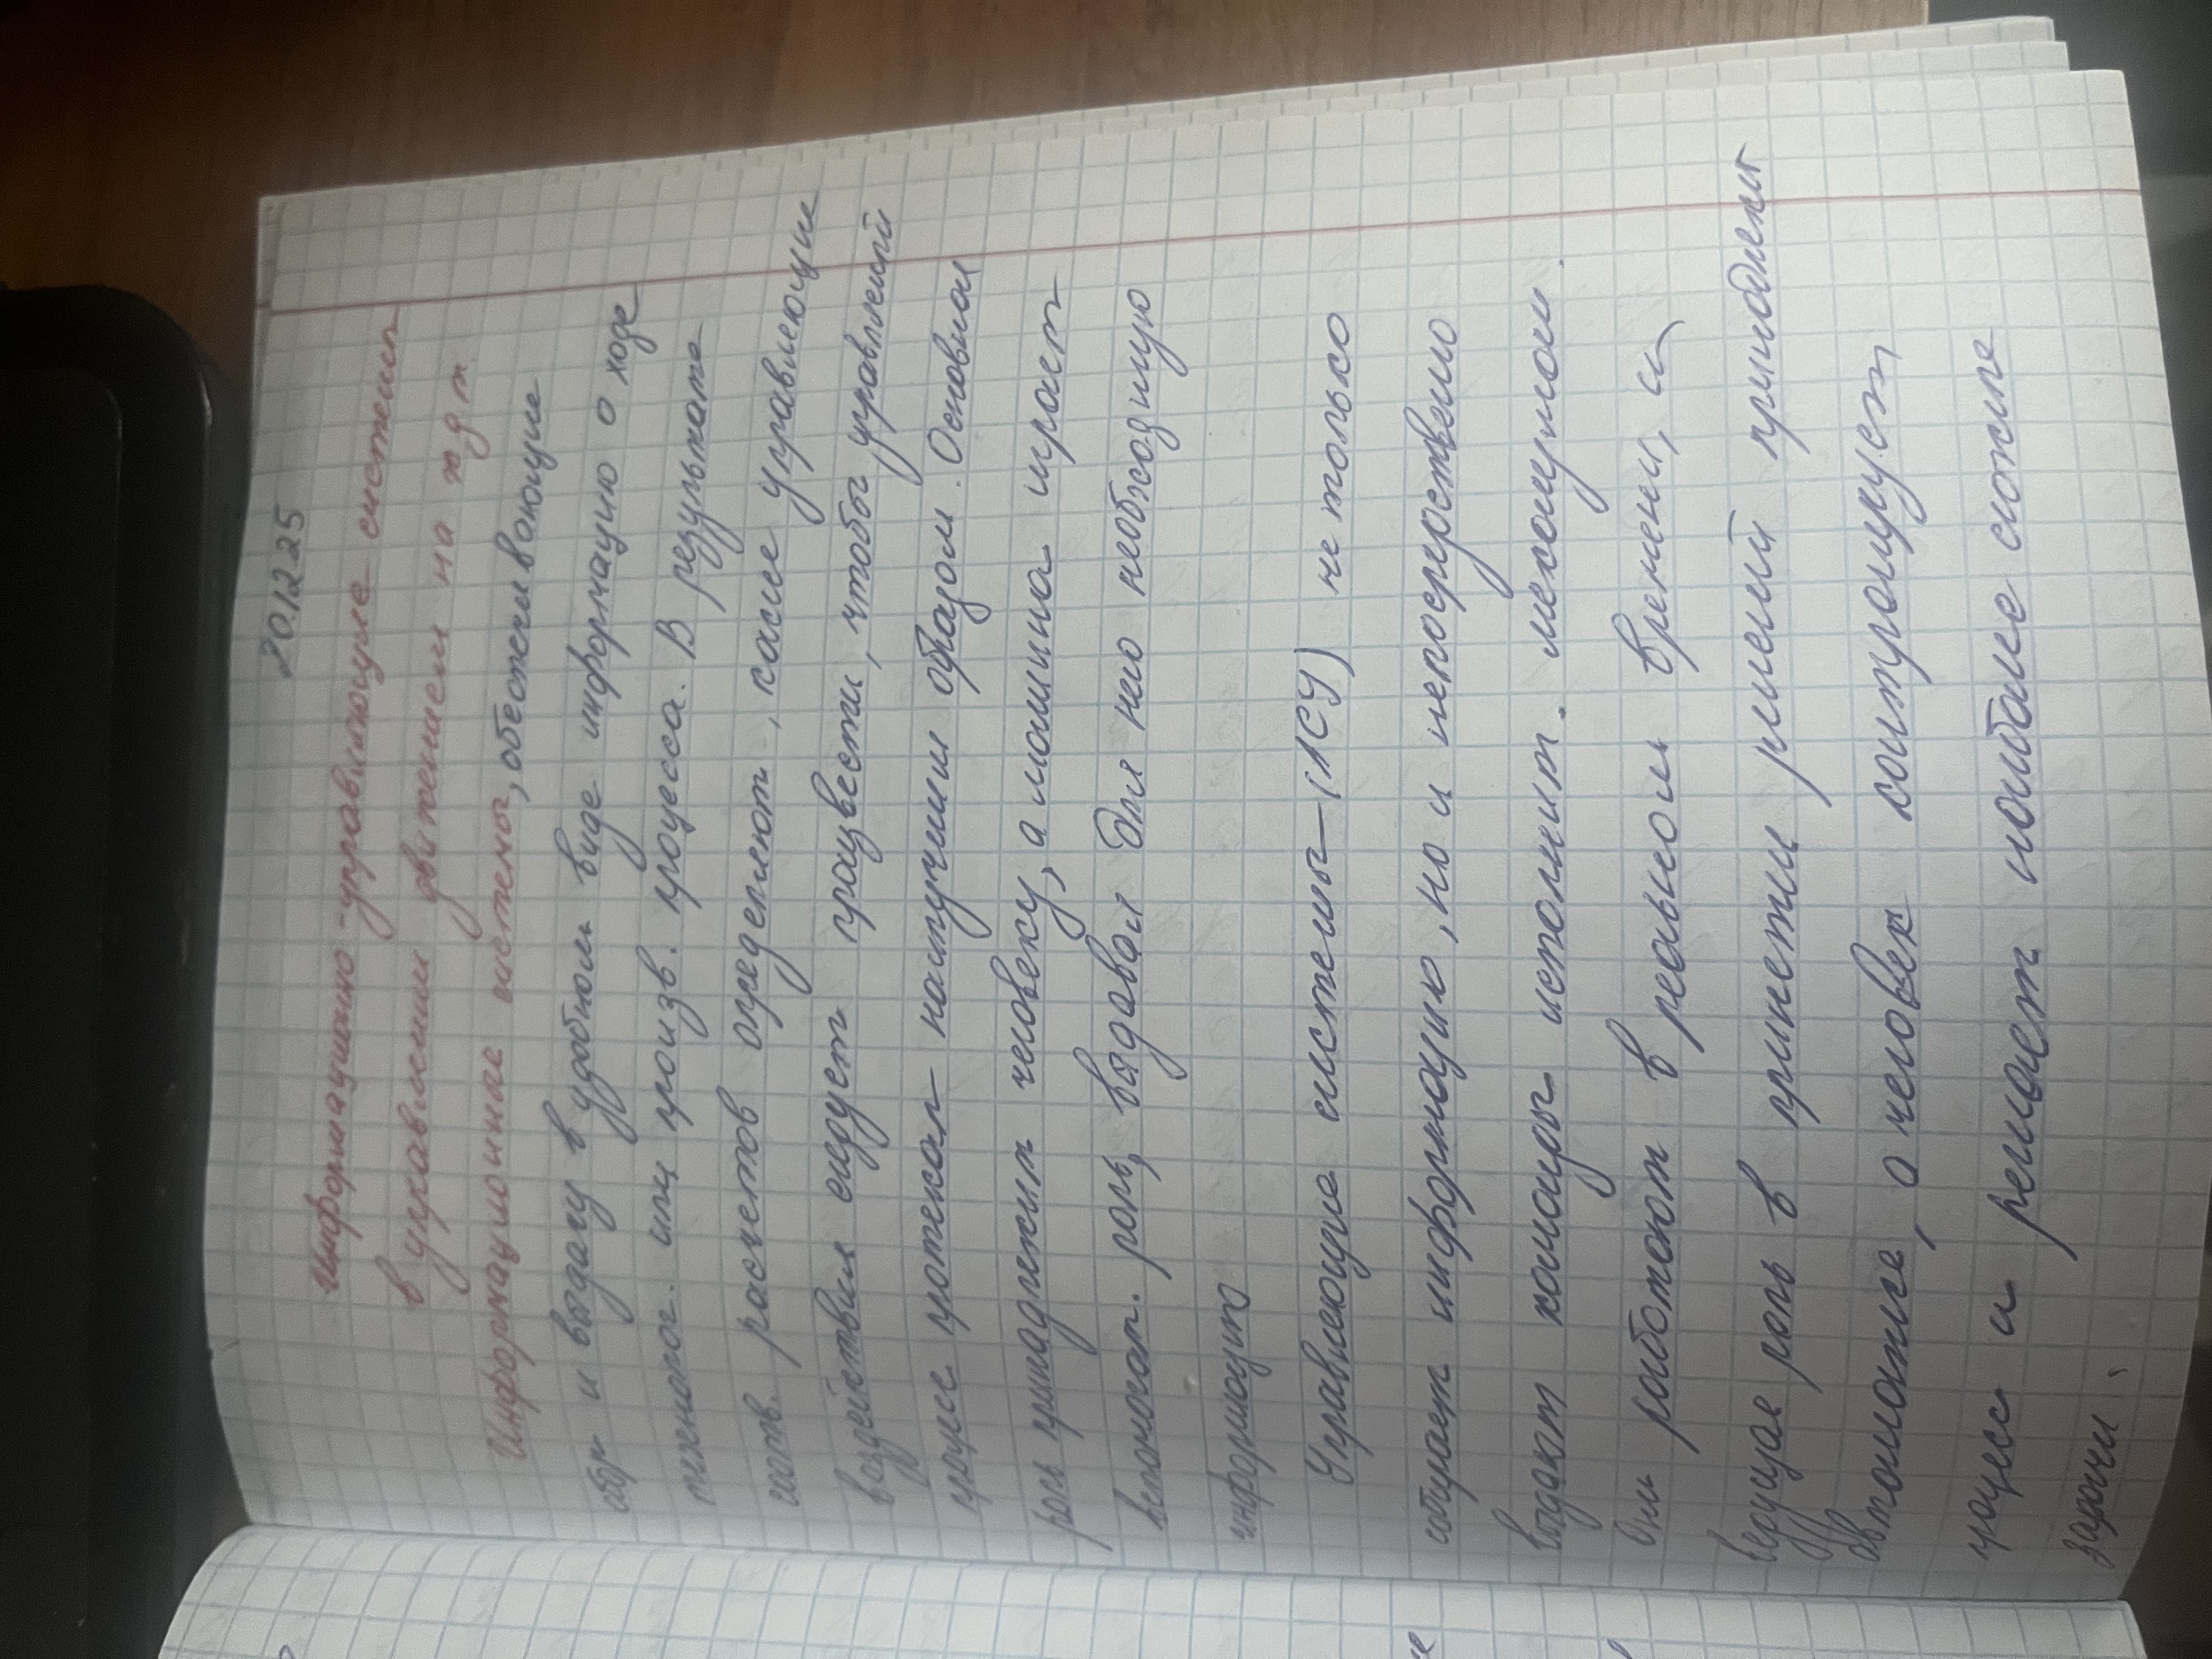 20.12.25
Информационно-управляющие системы
в управлении движением на ж.д.т.
Информационные системы, обеспечивающие
сбор и выдачу в удобном виде информацию о ходе
технолог. или произв. процесса. В результате
соотв. расчетов определяют, какие управляющие
воздействия следует произвести, чтобы управляемый
процесс протекал наилучшим образом. Основная
роль принадлежит человеку, а машина играет
вспомогат. роль, выдавая для него необходимую
информацию
Управляющие системы – (1СУ) не только
собирает информацию, но и непосредствено
выдают команды исполнит. механизмам.
Они работают в реальном времени, а
ведущая роль в принятии решений принадлежит
автоматике, а человек контролирует
процесс и решает наиболее сложные
задачи.